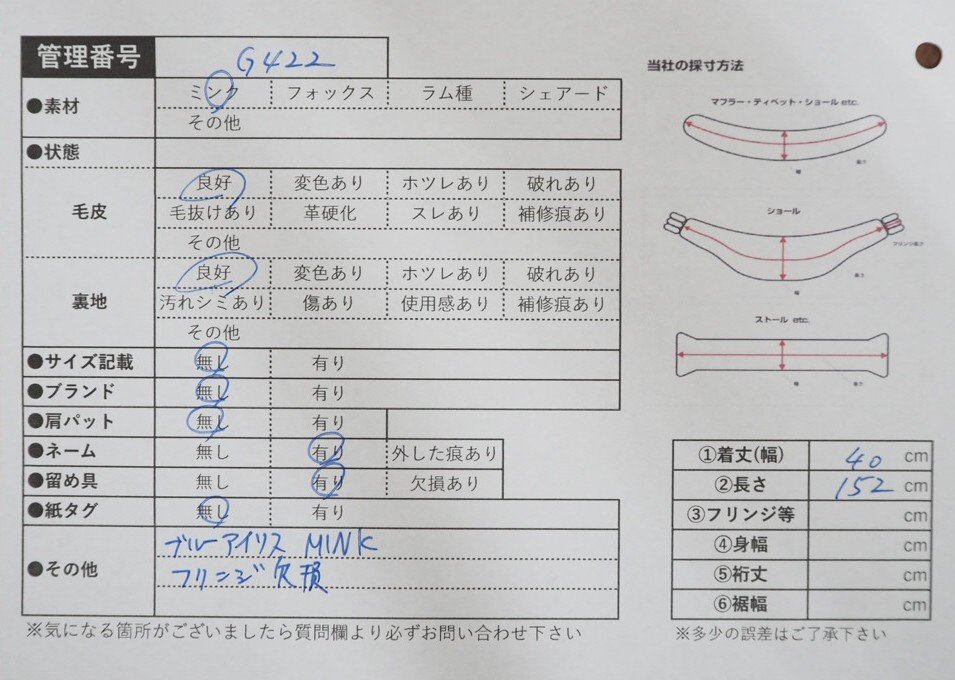 管理番号 G422
●素材 ミンク フォックス ラム種 シェアード
その他
●状態
毛皮 良好 変色あり ホツレあり 破れあり
毛抜けあり 革硬化 スレあり 補修痕あり
その他
裏地 良好 変色あり ホツレあり 破れあり
汚れシミあり 傷あり 使用感あり 補修痕あり
その他
●サイズ記載 無し 有り
●ブランド 無し 有り
●肩パット 無し 有り
●ネーム 無し 有り 外した痕あり
●留め具 無し 有り 欠損あり
●紙タグ 無し 有り
●その他 ブルーアイリス MINK
フリンジ欠損
※気になる箇所がございましたら質問欄より必ずお問い合わせ下さい
当社の採寸方法
マフラー・ティペット・ショール etc.
長さ
幅
ショール
フリンジ長さ
長さ
幅
ストール etc.
幅
長さ
①着丈(幅) 40 cm
②長さ 152 cm
③フリンジ等 cm
④身幅 cm
⑤裄丈 cm
⑥裾幅 cm
※多少の誤差はご了承下さい